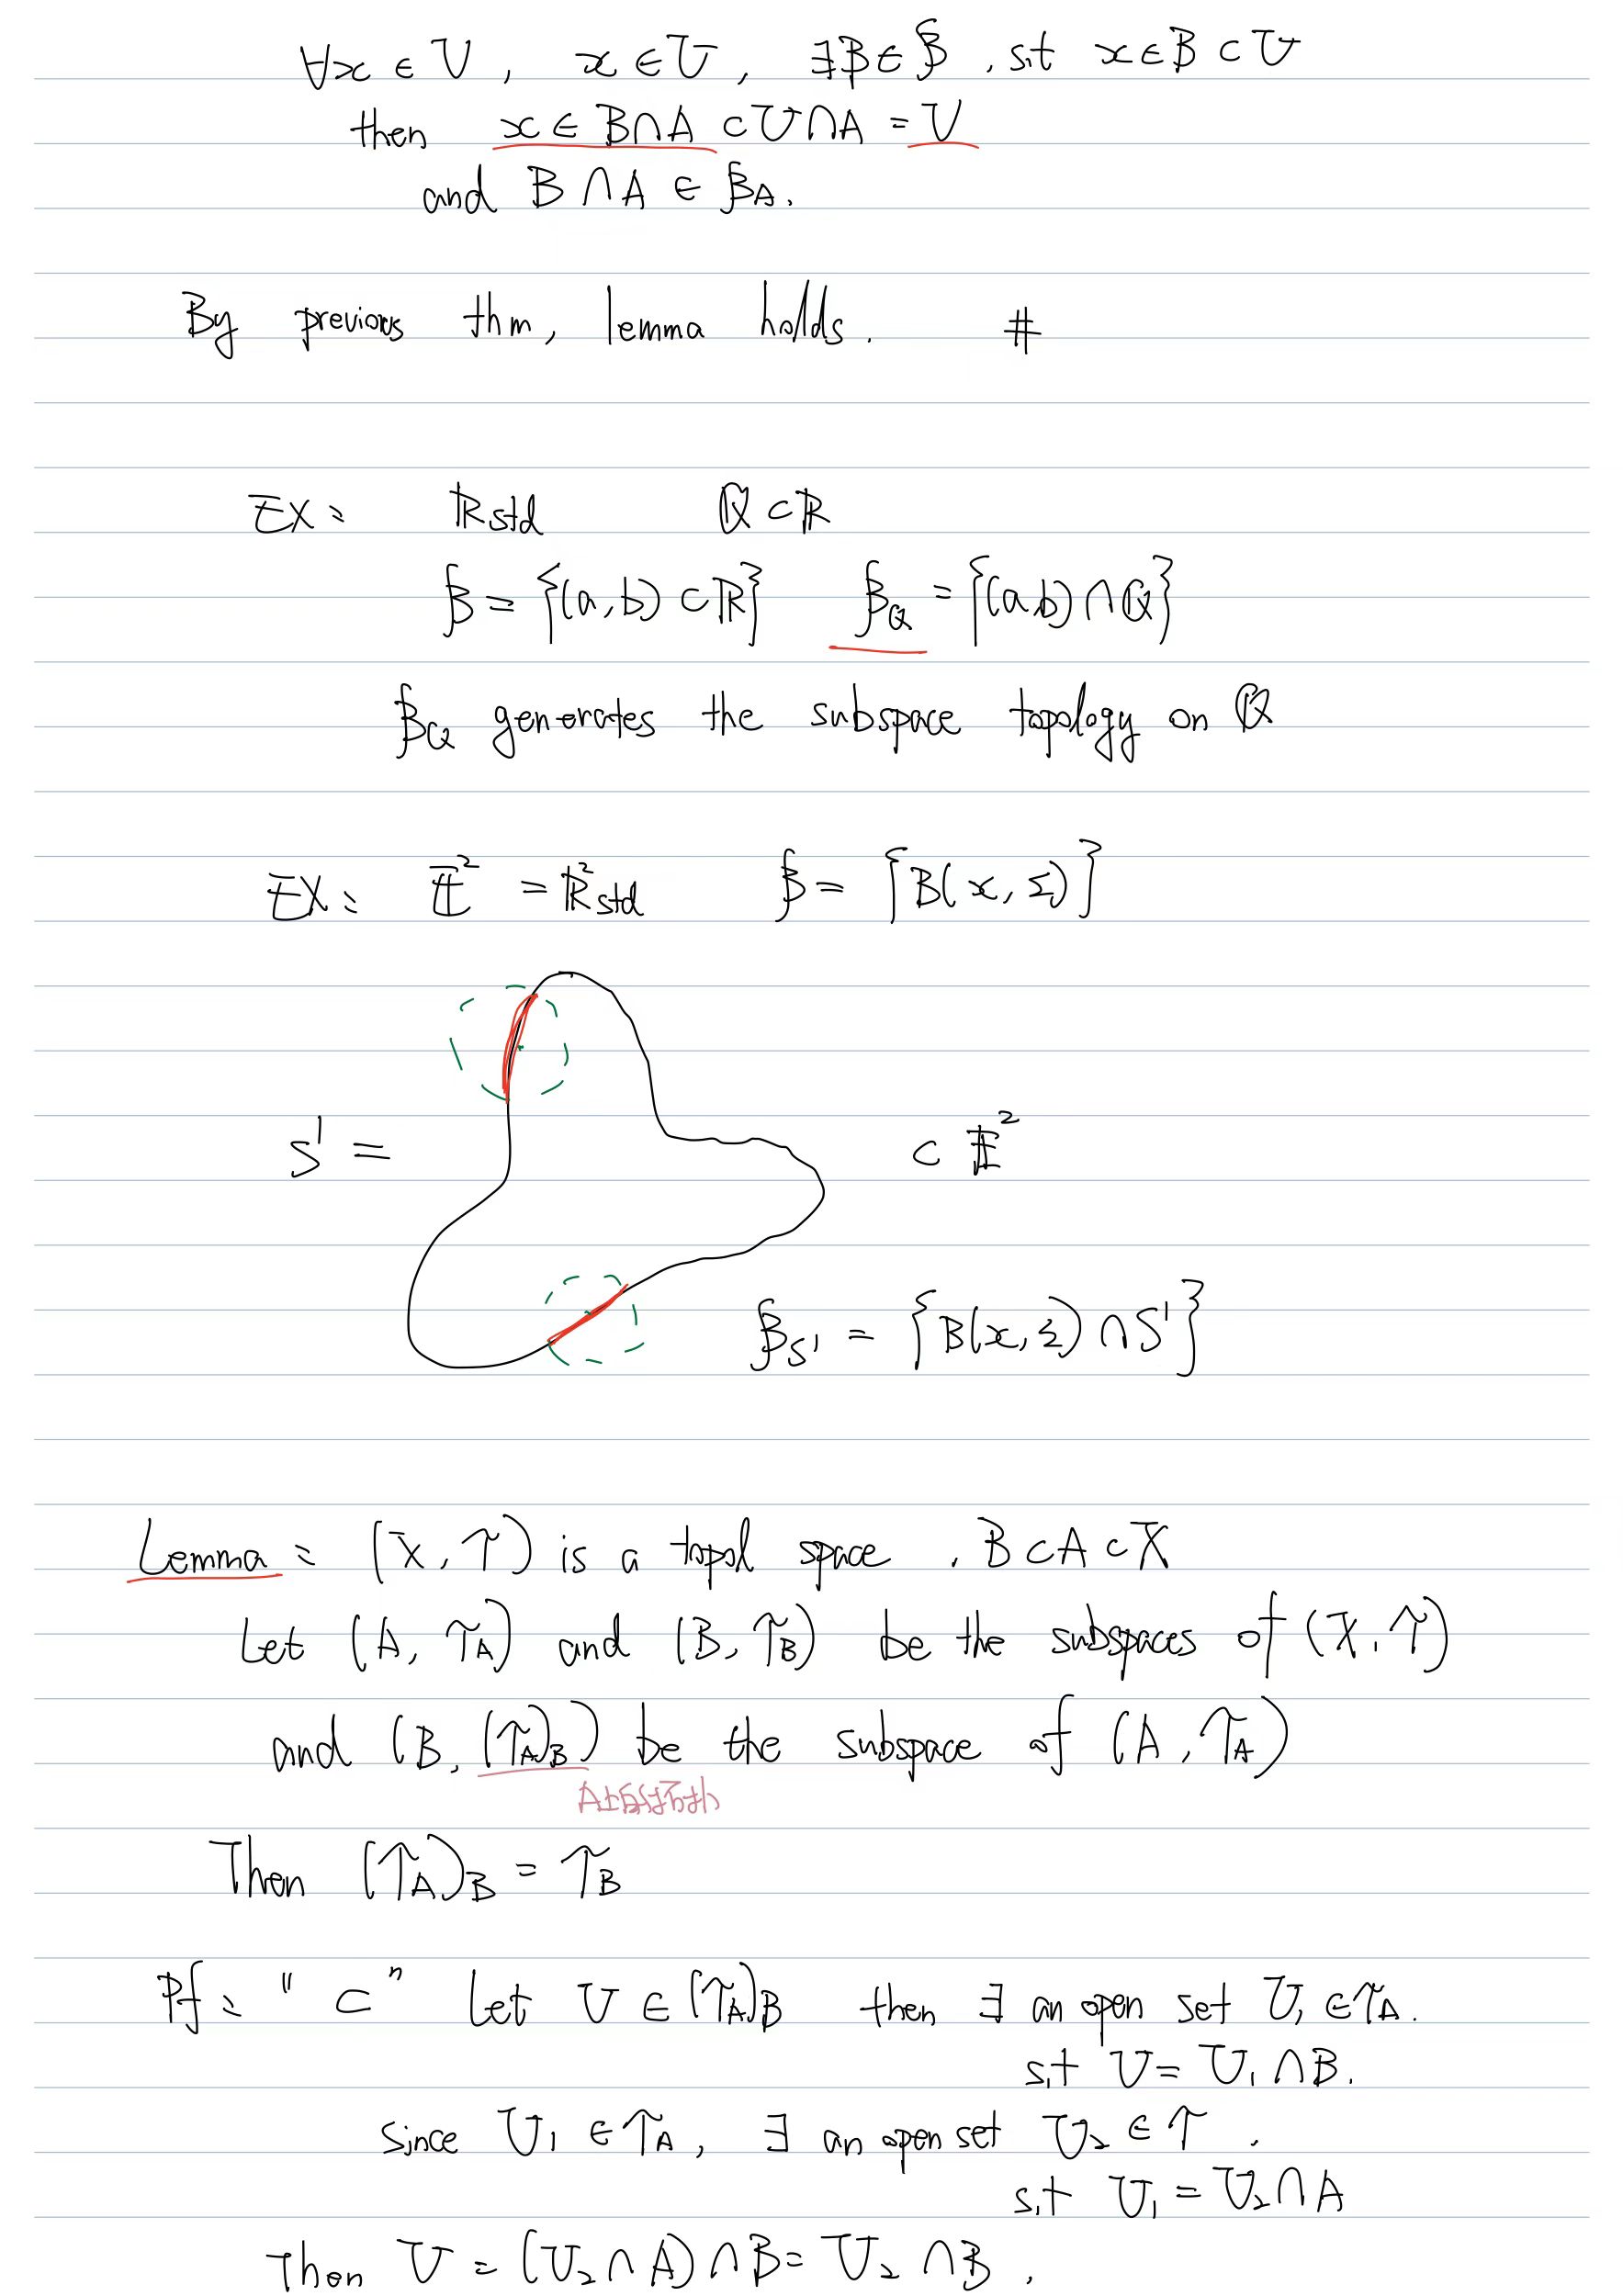 ∀x ∈ V , x ∈ U , ∃B ∈ 𝓑 , s.t x ∈ B ⊂ U
then x ∈ B∩A ⊂ U∩A = V
and B ∩ A ∈ 𝓑_A.
By previous thm, lemma holds. #
EX: ℝstd ℚ ⊂ ℝ
𝓑 = {(a,b) ⊂ ℝ} 𝓑_ℚ = {(a,b) ∩ ℚ}
𝓑_ℚ generates the subspace topology on ℚ
EX: 𝔼² = ℝ²std 𝓑 = {B(x, ε)}
S¹ = ⊂ 𝔼²
𝓑_S¹ = {B(x, ε) ∩ S¹}
Lemma: (X, τ) is a topol space , B ⊂ A ⊂ X
Let (A, τ_A) and (B, τ_B) be the subspaces of (X, τ)
and (B, (τ_A)_B) be the subspace of (A, τ_A)
A上的拓扑
Then (τ_A)_B = τ_B
Pf: "⊂" Let U ∈ (τ_A)_B then ∃ an open set U₁ ∈ τ_A.
s.t U = U₁ ∩ B.
Since U₁ ∈ τ_A, ∃ an open set U₂ ∈ τ.
s.t U₁ = U₂ ∩ A
Then U = (U₂ ∩ A) ∩ B = U₂ ∩ B.